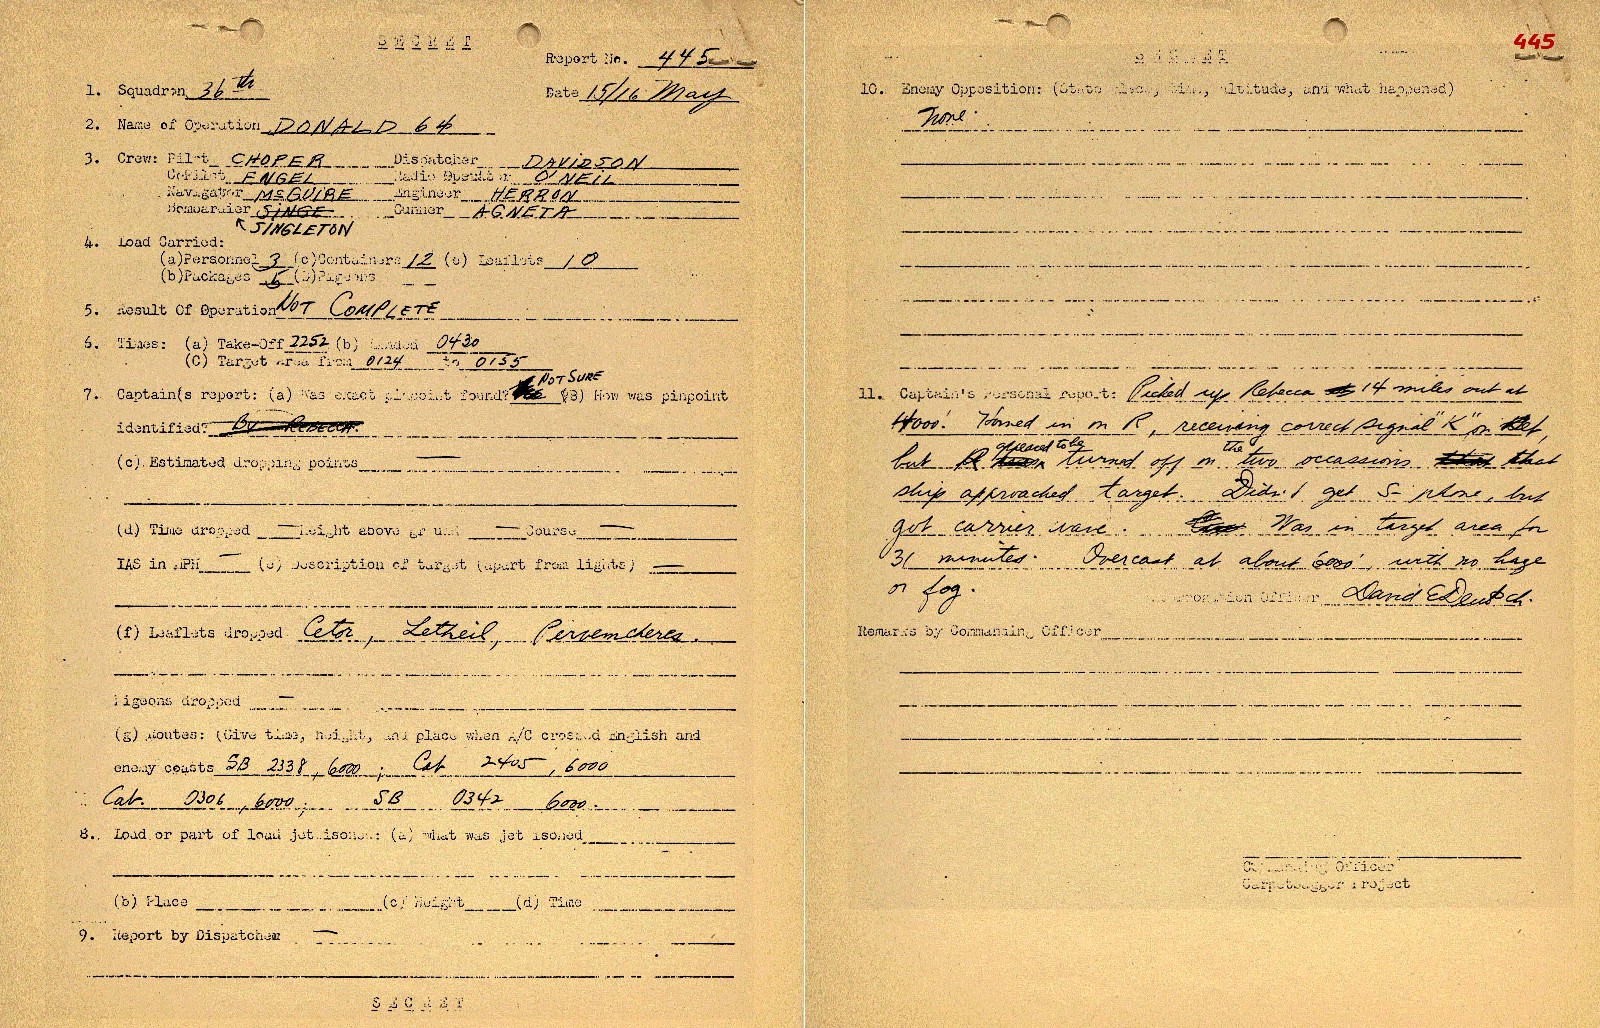 SECRET
Report No. 445
1. Squadron 36th Date 15/16 May
2. Name of Operation DONALD 64
3. Crew: Pilot CHOPER Dispatcher DAVIDSON
CoPilot ENGEL Radio Operator O'NEIL
Navigator McGUIRE Engineer HERRON
Bombardier SINGE Gunner AGNETA
SINGLETON
4. Load Carried:
(a)Personnel 3 (c)Containers 12 (e) Leaflets 10
(b)Packages 5 (D)Pigeons
5. Result Of Operation NOT COMPLETE
6. Times: (a) Take-Off 2252 (b) Landed 0430
(C) Target area from 0124 to 0155
NOT SURE
7. Captain(s report: (a) Was exact pinpoint found? (B) How was pinpoint
identified? By REBECCA.
(c) Estimated dropping points —
(d) Time dropped — Height above ground — Course —
IAS in MPH — (e) Description of target (apart from lights) —
(f) Leaflets dropped Cetor, Letheil, Pervemcheres.
Pigeons dropped —
(g) Routes: (Give time, height, and place when A/C crossed English and
enemy coasts SB 2338, 6000; Cab 2405, 6000
Cab. 0306, 6000; SB 0342 6000.
8. Load or part of load jettisoned: (a) What was jettisoned
(b) Place (c) Height (d) Time
9. Report by Dispatcher —
SECRET
445
SECRET
10. Enemy Opposition: (State place, time, altitude, and what happened)
None.
11. Captain's Personal report: Picked up Rebecca 14 miles out at
4000'. Homed in on R, receiving correct signal "K" on Reb,
but R appeared to be turned off on the two occassions that
ship approached target. Didn't get S-phone, but
got carrier wave. Was in target area for
31 minutes. Overcast at about 6000', with no haze
or fog. Interrogation Officer David E Deutsch.
Remarks by Commanding Officer
Commanding Officer
Carpetbagger Project